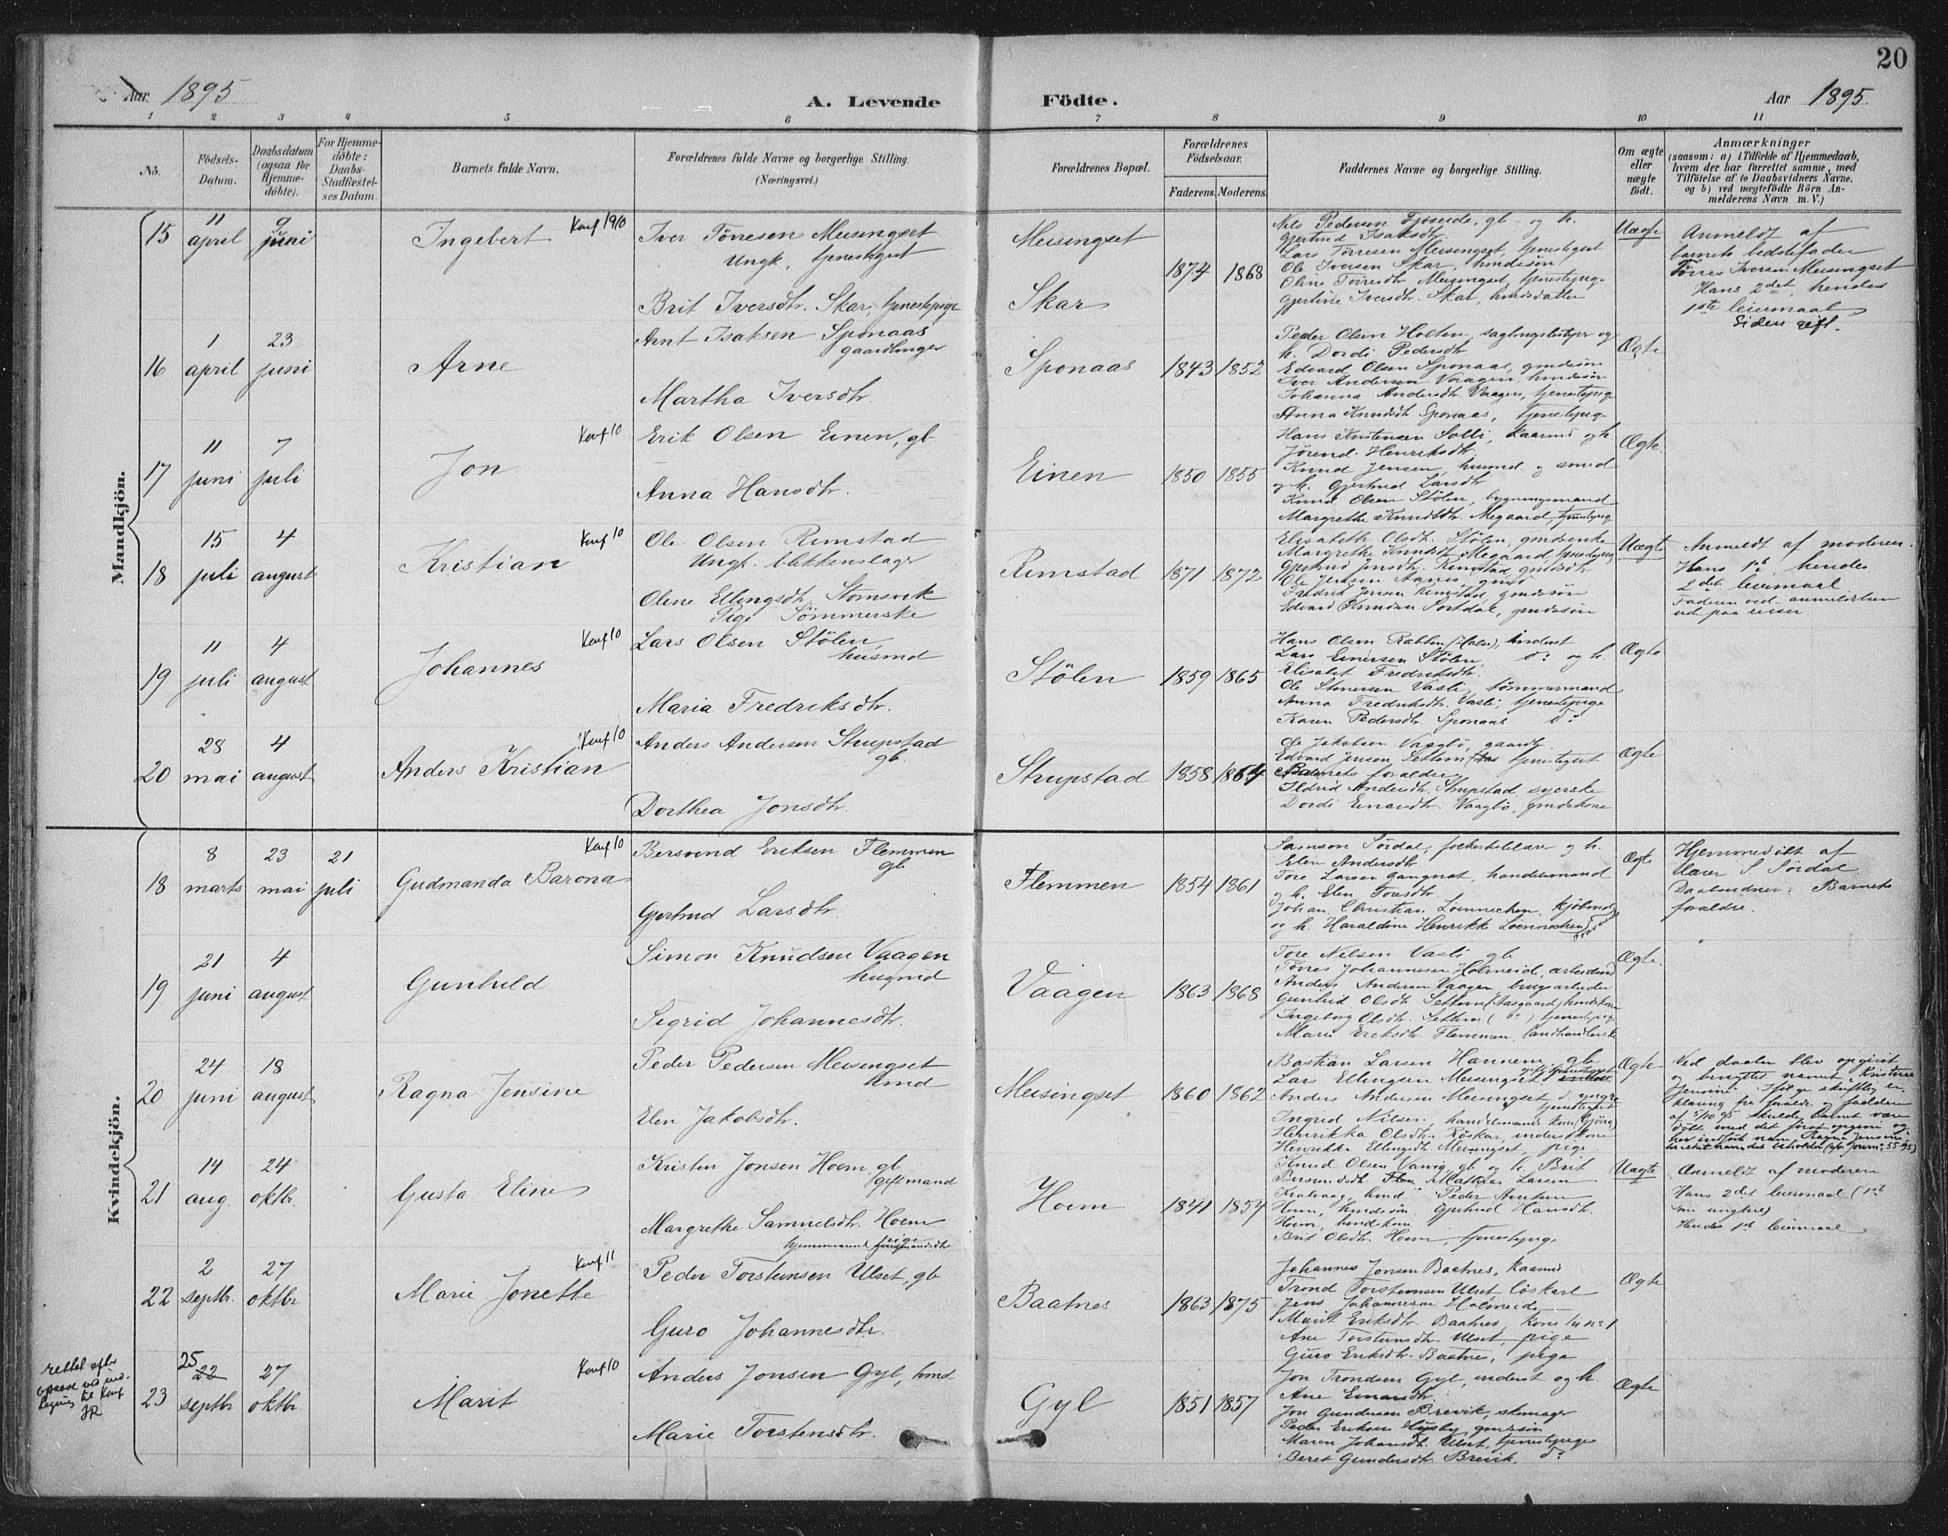 20
Aar 1895
A. Levende Födte.
Aar 1895.
1 2 3 4 5 6 7 8 9 10 11
No.
Födsels-Datum.
Daabsdatum (ogsaa for Hjemme-döbte).
For Hjemme-döbte: Daabs-Stadfæstel-ses Datum.
Barnets fulde Navn.
Forældrenes fulde Navne og borgerlige Stilling.
(Næringsvei.)
Forældrenes Bopæl.
Forældrenes Födselsaar.
Faderens. Moderens.
Faddernes Navne og borgerlige Stilling.
Om ægte eller uægte födt.
Anmærkninger
(saasom: a) i Tilfælde af Hjemmedaab, hvem der har forrettet samme, med Tilföielse af to Daabsvidners Navne. og b) ved uægtefödte Börn An-melderens Navn m. V.)
Mandkjön.
15 11 april 9 juni Ingebert Konf 1910
Iver Töresen Meisingset
Ungk. tjenestegut
Brit Iversdtr. Skar, tjenestepige
Meisingset
Skar
1874 1868
Nils Pedersen Gjöseide, gb og h.
Gjertrud Isaksdtr
Lars Törresen Meisingset, tjenestegut
Ole Iversen Skar, husmdsön
Oline Törresdtr Meisingset, tjenestepige
Gjertine Iversdtr. Skar, husmdsdatter
Uægte
Anmeldt af
barnets bedstefader
Törres Iversen Meisingset
Hans 2det, hendes
1ste leiermaal
Siden gift.
16 1 april 23 juni Arne
Arnt Isaksen Sponaas
gaardbruger
Martha Iversdtr.
Sponaas
1843 1852
Peder Olsen Holten, sagbrugsbestyrer og
h. Dordi Pedersdtr
Edvard Olsen Sponaas, gmdssön
Iver Andersen Vaagen, husmdssön
Johanna Andersdtr Vaagen, tjenestepige
Anna Knudsdtr Sponaas, tjenestepige
Ægte
17 11 juni 7 juli Jon Konf 10
Erik Olsen Einen, gb
Anna Hansdtr.
Einen
1850 1855
Hans Kristensen Solli, kaarmd og h.
Jörend Henriksdtr.
Knud Jensen, husmd og smed
og h. Gjertrud Larsdtr
Knud Olsen Stölen, bygningsmand
Margrethe Knudsdtr. Megaard, tjenestepige
Ægte.
18 15 juli 4 august Kristian Konf 10
Ole Olsen Rimstad
Ungk. blikkenslager
Oline Ellingsdtr. Stomsvik
Pige Sömmerske
Rimstad
1871 1872
Elisabeth Olsdtr. Stölen, gmdsenke
Margrethe Knudsdtr Megaard, tjenestepige
Gjertrud Jonsdtr. Rimstad, gmdsdtr
Ole Jensen Aanes, gmd
Fredrik Jensen Rimstad, gmdssön
Edvard Knudsen Sortdal, gmdssön
Uægte
Anmeldt af moderen.
Hans 1st, hendes
2det leiermaal
Faderen ved anmeldelsen
ud paa reiser.
19 11 juli 4 august Johannes Konf 10
Lars Olsen Stölen,
husmd
Maria Fredriksdtr.
Stölen
1859 1865
Hans Olsen Rabben
Lars Einersen Stölen, do: og h.
Elisabet Fredriksdtr.
Vasli, tömmermand
Anna Fredriksdtr. Vasli, tjenestepige
Karen Pedersdtr Sponaas do:
Ægte
20 28 mai 4 august Anders Kristian Konf 10
Anders Andersen Strupstad
gb
Dorthea Jonsdtr.
Strupstad
1858 1864
Ole Jakobsen Vaagbö, gaardb.
Edvard Jensen Settem tjenestegut
Barnets forældre
Ildrid Andersdtr. Strupstad syerske
Dordi Einarsdtr. Vaagbö, gmdskone
Ægte
Kvindekjön.
18 8 marts 23 mai 21 juli Gudmanda Barona Konf 10
Bersvend Eriksen Flemmen
gb.
Gjertrud Larsdtr.
Flemmen
1854 1861
Samson Sördal, folkeskolelærer og h.
Elen Andersdtr.
Tore Larsen Gangnat, handelsmand
og h. Elen Toresdtr.
Johan Christian Lönnechen, kjöbmd
og h. Haraldine Henrikke Lönnechen
Ægte
Hjemmedöbt af
lærer S. Sördal
Daabsvidner: Barnets
forældre.
19 21 juni 4 august Gunhild
Simon Knudsen Vaagen
husmd
Sigrid Johannesdtr.
Vaagen
1863 1868
Tore Nilsen Vasli gb
Törres Johannesen Holmeide, arbeidsmd
Anders Andersen Vaagen, brugsarbeider
Gunhild Olsdtr. Settem (Aasgaard) husmdskone
Ingeborg Olsdtr. Settem (do) tjenestepige
Marie Eriksdtr. Flemmen, landhandlerske
Ægte.
20 24 juni 18 august Ragna Jensine
Peder Pedersen Meisingset
husmd
Elen Jakobsdtr.
Meisingset
1860 1862
Bastian Larsen Hannem, gb
Lars Ellingsen Meisingset
Anders Andersen Meisingset d. yngre
tjenestegut
Ingrid Nilsen, handelsmands kone
Henrikka Olsdtr. Röskar, inderstkone
Henrikke Ellingsdtr Meisingset, pige
Ægte
Ved daaben blev opgivet
og benyttet navnet Kristine
Jensine. Ifölge skriftlig er
klæring fra forældre og fadderne
af 5/10 95 skulde Barnet være
21 14 aug. 24 oktbr. Gusta Eline
Kristen Jonsen Hoem, gb
gift mand
Margrethe Samuelsdtr. Hoem
pige
Hoem
1841 1854
Knud Olsen Vaag, gb og h. Brit
Bersvendsdtr. Mathias Larsen
Peder Arntsen
Hoem, husmdssön. Gjertrud Hansdtr.
Hoem, husmdskone
Brit Olsdtr. Hoem, tjenestepige
Uægte
Anmeldt af moderen
Hans 2det leiermaal (1st
som ungkarl)
Hendes 1st leiermaal
22 2 septbr. 27 oktbr Marie Jonette Konf 11
Peder Torstensen Ulset, gb
Guro Johannesdtr.
Baatnes
1863 1875
Johannes Jonsen Baatnes, kaarmd
Trond Torstensen Ulset löskarl
Jens Johannesen Holmeide
Marit Eriksdtr. Baatnes, kone til no 1
Ane Torstensdtr. Ulset, pige
Guro Eriksdtr. Baatnes, pige
Ægte
rettet efter
opgave ved ind-
til Konf
JR
23 25 22 septbr 27 oktbr. Marit Konf 10
Anders Jonsen Gyl, husmd
Marie Torstensdtr.
Gyl
1851 1857
Jon Trondsen Gyl, inderst og h.
Ane Einarsdtr.
Jon Gundersen Brevik, skomager
Peder Eriksen Husby, gmdssön
Maren Johansdtr. Ulset, tjenestepige
Beret Gundersdtr. Brevik, do:
Ægte